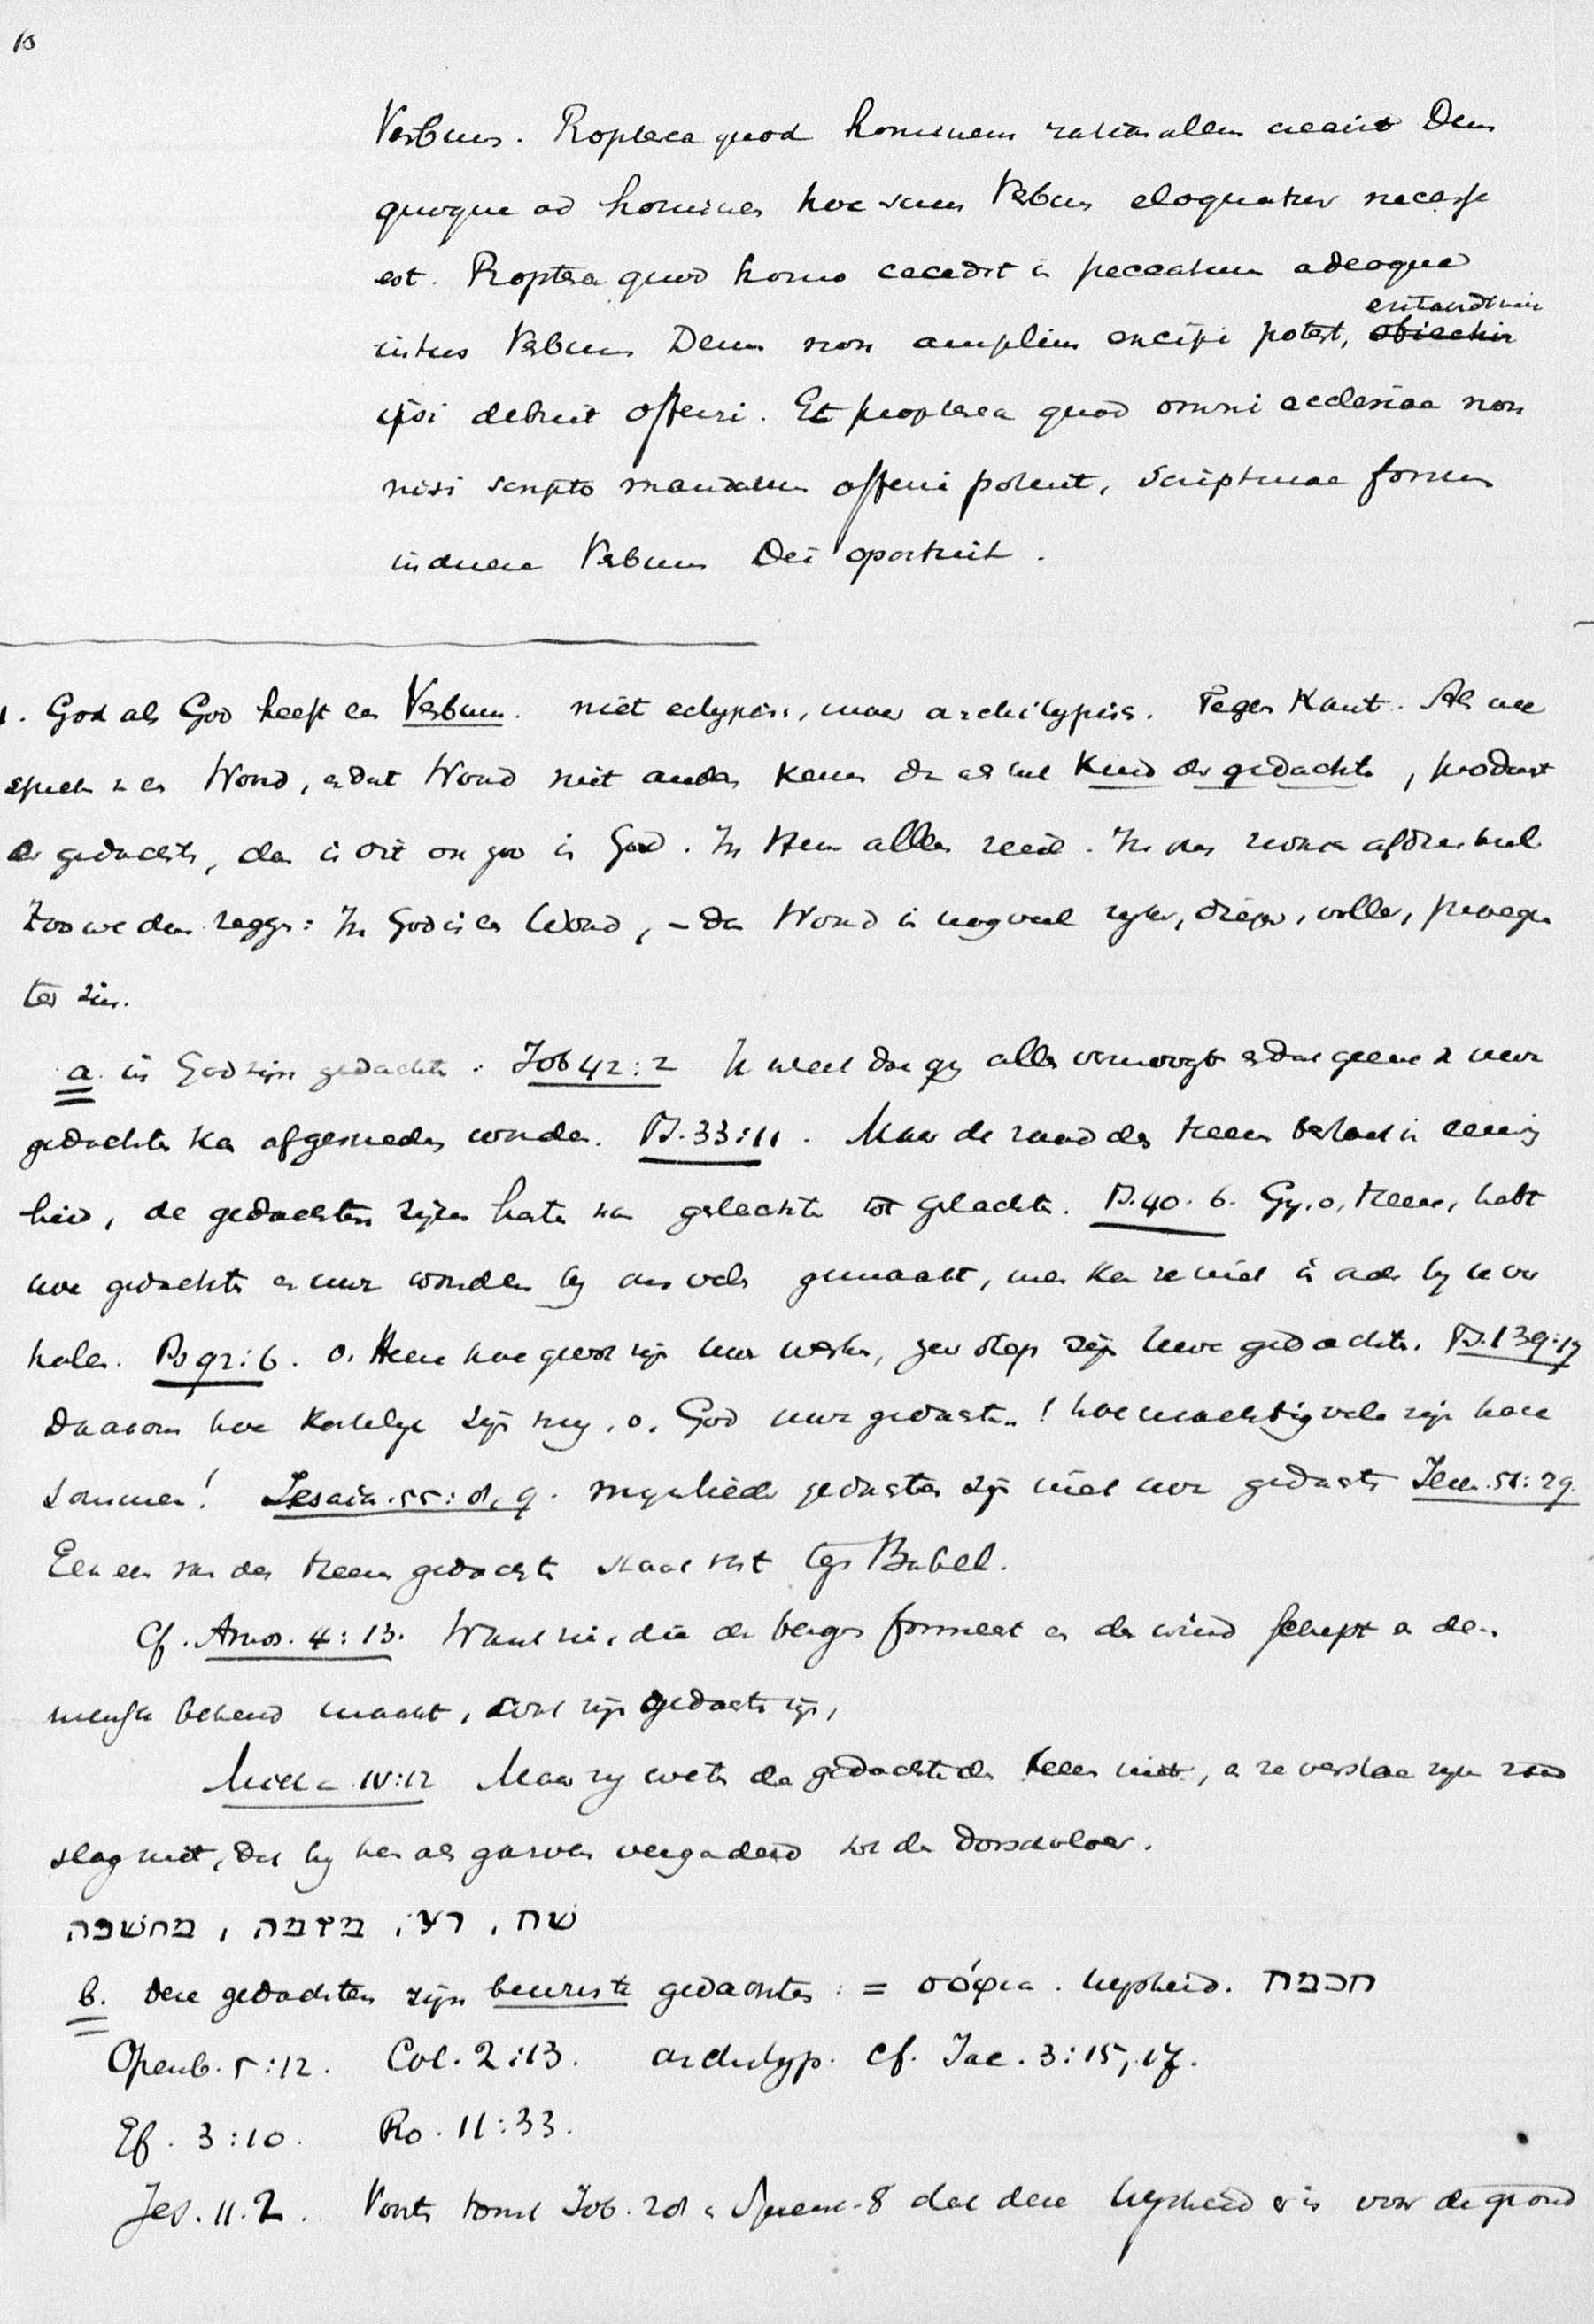 10
Verbum. Propterea quod hominem rationalem creavit Deus
quoque ad homines hoc suum Verbum eloquatur necesse
est. Propterea quod homo cecidit in peccatum adeoque
intus Verbum Deum non amplius excipi potest,
ipsi debuit offerri. Et propterea quod omni ecclesiae non
nisi scripto mandatum offerri potuit, Scripturae formam
induere Verbum Dei oportuit.
1. God als God heeft een Verbum. niet ectypisch, maar archetypisch. Tegen Kant. Als we
spreken van een Woord, en dat Woord niet anders kennen dan als het Kind der gedachte, product
der gedachte, dan is dit ook zoo in God. In Hem alles reëel. In ons
Zoo we dan zeggen: In God is een Woord, – dat Woord in nog veel rijker, dieper, voller,
ter zin.
a. in God zijn gedachten. Job 42:2 Ik weet dat gij alles vermoogt en dat geene van uwe
gedachten kan afgesneden worden. Ps. 33:11. Maar de raad des Heeren bestaat in eeuwig
heid, de gedachten zijns harten van geslachte tot geslachte. Ps. 40.6. Gy, o, Heere, hebt
uwe gedachten en uwe wonderen by ons vele gemaakt, men kan ze niet in orde by u ver
halen. Ps 92:6. o. Heere hoe groot zijn uwe werken, zeer diep zijn Uwe gedachten. Ps. 139:17
Daarom hoe kostelijk zijn my, o. God uwe gedachten! hoe machtig vele zijn hare
sommen! Jesaia. 55:8, 9. mijnlieder gedachten zijn niet uwe gedachten Jer. 51:29.
Een een van des Heeren gedachten staat vast tegen Babel.
Cf. Amos. 4:13. Want zie, die de bergen formeert en den wind schept en den
mensch bekend maakt, wat zijn gedachten zijn,
Micha IV:12 Maar zy weten de gedachten des Heeren niet, en ze verstaan zijn raad
slag niet, dat hy hen als garven vergaderd tot den dorschvloer.
שח, רע, מזמה, מחשבה
b. Deze gedachten zijn bewuste gedachten := σόφια. wysheid. חכמה
Openb. 5:12. Col. 2:13. archetyp. cf. Jac. 3:15, 17.
Ef. 3:10. Ro. 11:33.
Jes. 11.2. Voorts toont Job. 28 en Spreuk. 8 dat deze wysheid er is voor de grond